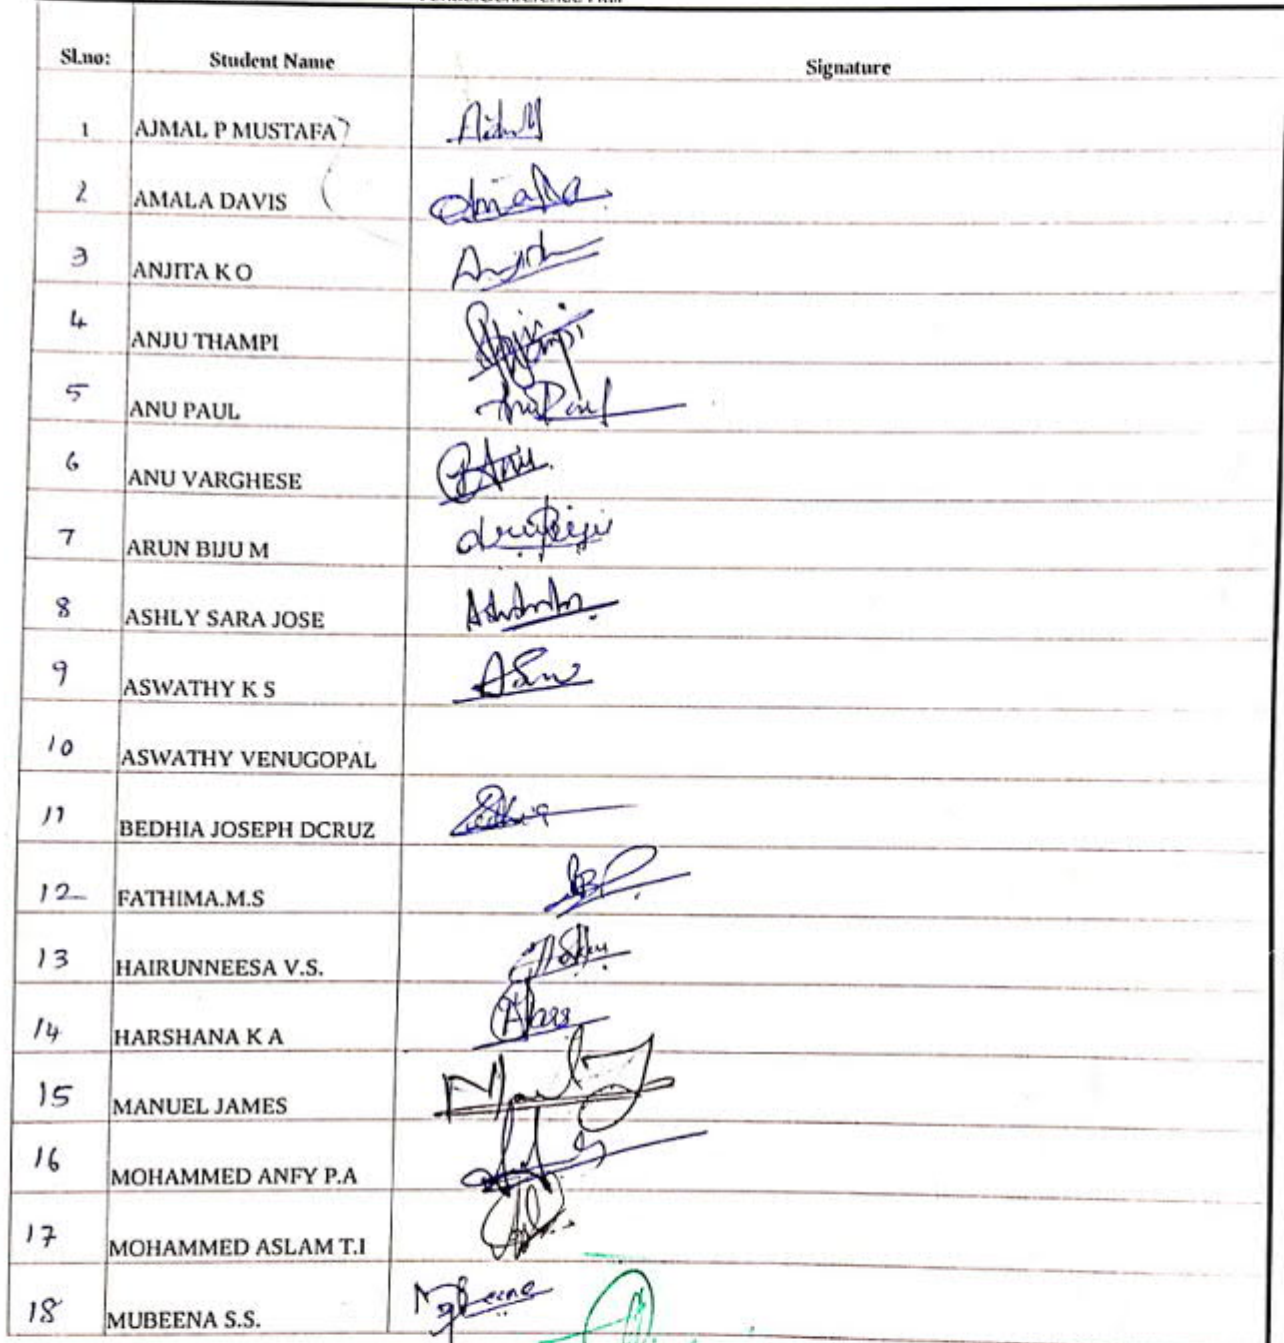 Sl.no: Student Name Signature
1 AJMAL P MUSTAFA
2 AMALA DAVIS Amala
3 ANJITA K O Anjita
4 ANJU THAMPI
5 ANU PAUL Anu Paul
6 ANU VARGHESE Anu
7 ARUN BIJU M
8 ASHLY SARA JOSE
9 ASWATHY K S Asw
10 ASWATHY VENUGOPAL
11 BEDHIA JOSEPH DCRUZ Bedhia
12 FATHIMA.M.S
13 HAIRUNNEESA V.S.
14 HARSHANA K A
15 MANUEL JAMES
16 MOHAMMED ANFY P.A
17 MOHAMMED ASLAM T.I
18 MUBEENA S.S. Mubeena